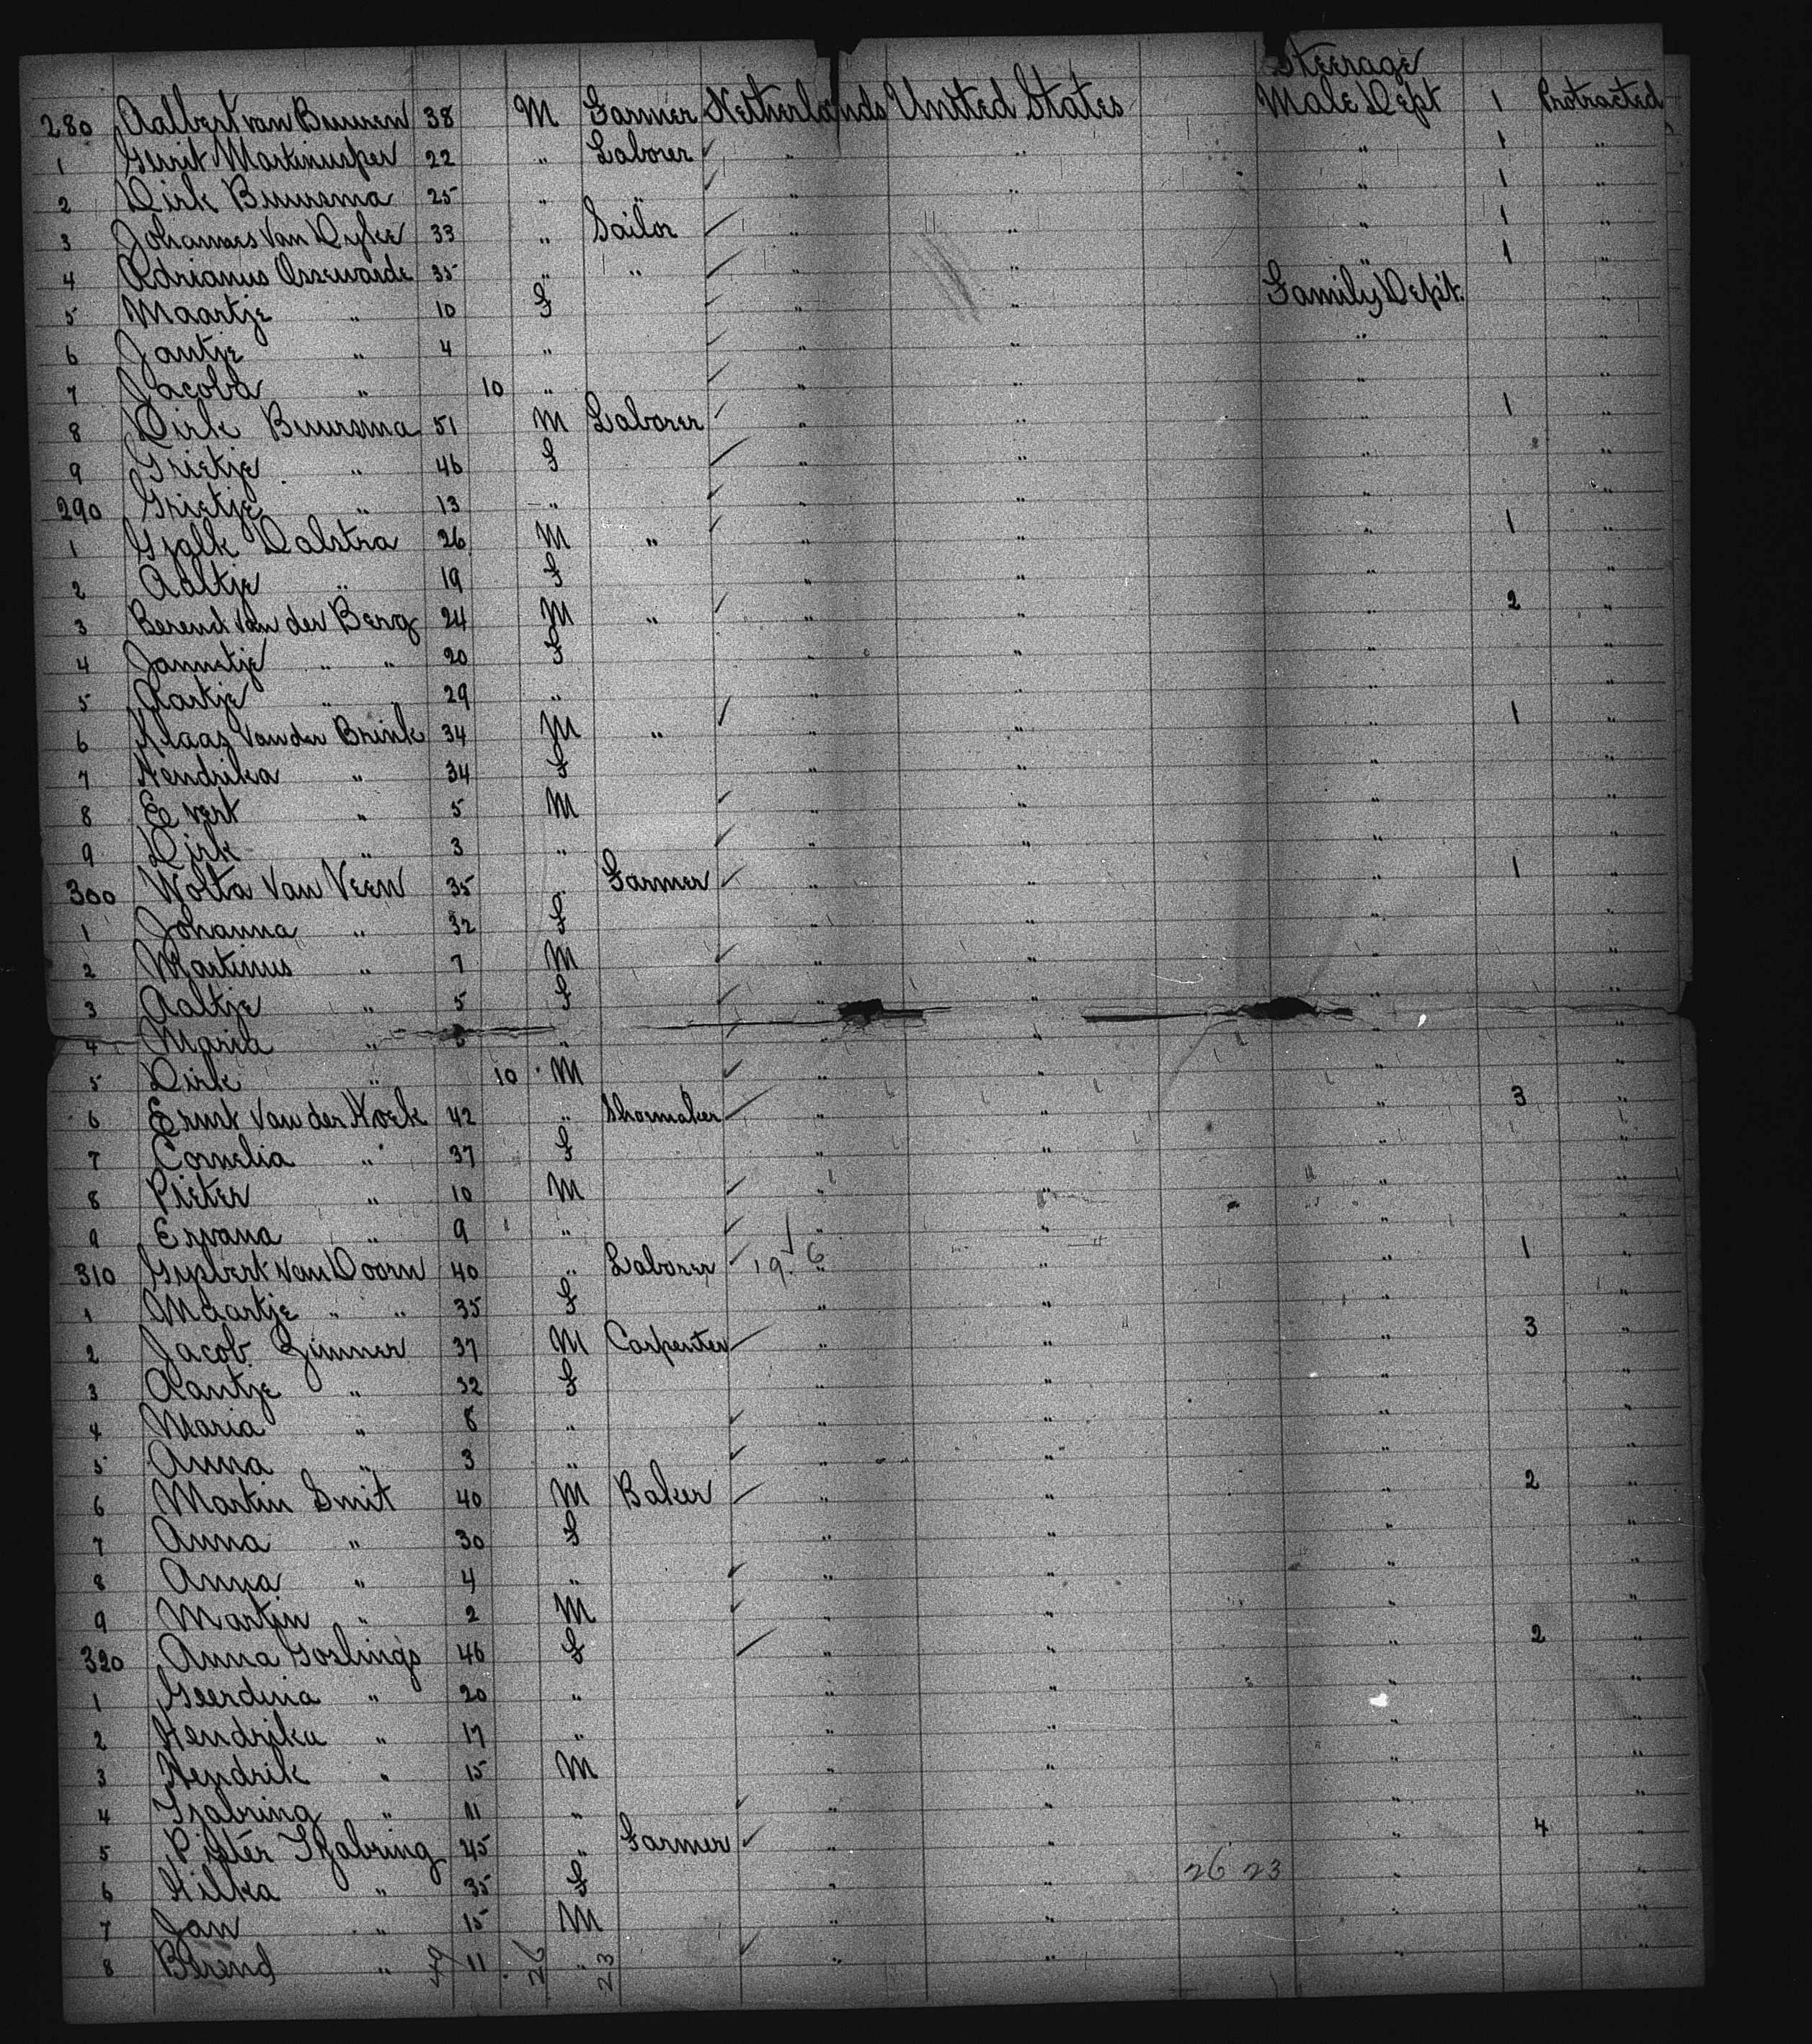 Steerage
280 Aalbert van Buuren 38 M Farmer Netherlands United States Male Dept 1 Protracted
1 Gerrit 22 " Laborer " " " 1 "
2 Dirk Buursma 25 " " " " " 1 "
3 Johannes Van Dyke 33 " Sailor " " " 1 "
4 Adrianus Ossewarde 35 " " " " " 1 "
5 Maartje " 10 F " " Family Dept. "
6 Jantje " 4 " " " " "
7 Jacoba " 10 " " " " "
8 Dirk Buursma 51 M Laborer " " " 1 "
9 Trietje " 46 F " " " "
290 Grietje " 13 " " " " "
1 Tjalk Dalstra 26 M " " " " 1 "
2 Aaltje " 19 F " " " "
3 Berend Van der Berg 24 M " " " " 2 "
4 Jannetje " " 20 F " " " "
5 Aartje " " 29 " " " " "
6 Klaas Van der Brink 34 M " " " " 1 "
7 Hendrika " 34 F " " " "
8 Evert " 5 M " " " "
9 Dirk " 3 " " " " "
300 Wolta Van Veen 35 " Farmer " " " 1 "
1 Johanna " 32 F " " " "
2 Martinus " 7 M " " " "
3 Aaltje " 5 F " " " "
4 Maria " " " " " "
5 Dirk " 10 M " " " "
6 Ernst Van der Hoek 42 " Shoemaker " " " 3 "
7 Cornelia " 37 F " " " "
8 Pieter " 10 M " " " "
9 " 9 " " " " "
310 Gysbert Van Doorn 40 " Laborer 19. 6 " " " 1 "
1 Maartje " " 35 F " " " "
2 Jacob Zimmer 37 M Carpenter " " " 3 "
3 Aantje " 32 F " " " "
4 Maria " 8 " " " " "
5 Anna " 3 " " " " "
6 Martin Smit 40 M Baker " " " 2 "
7 Anna " 30 F " " " "
8 Anna " 4 " " " " "
9 Martin " 2 M " " " "
320 Anna Goslings 46 F " " " 2 "
1 Geerdina " 20 " " " " "
2 Hendrika " 17 " " " " "
3 Hendrik " 15 M " " " "
4 Tjabring " 11 " " " " "
5 Pieter Tjabring 45 " Farmer " " " 4 "
6 Hilka " 35 F " " 26 23 " "
7 Jan " 15 M " " " "
8 Berend " 11 " " " " "
26 23